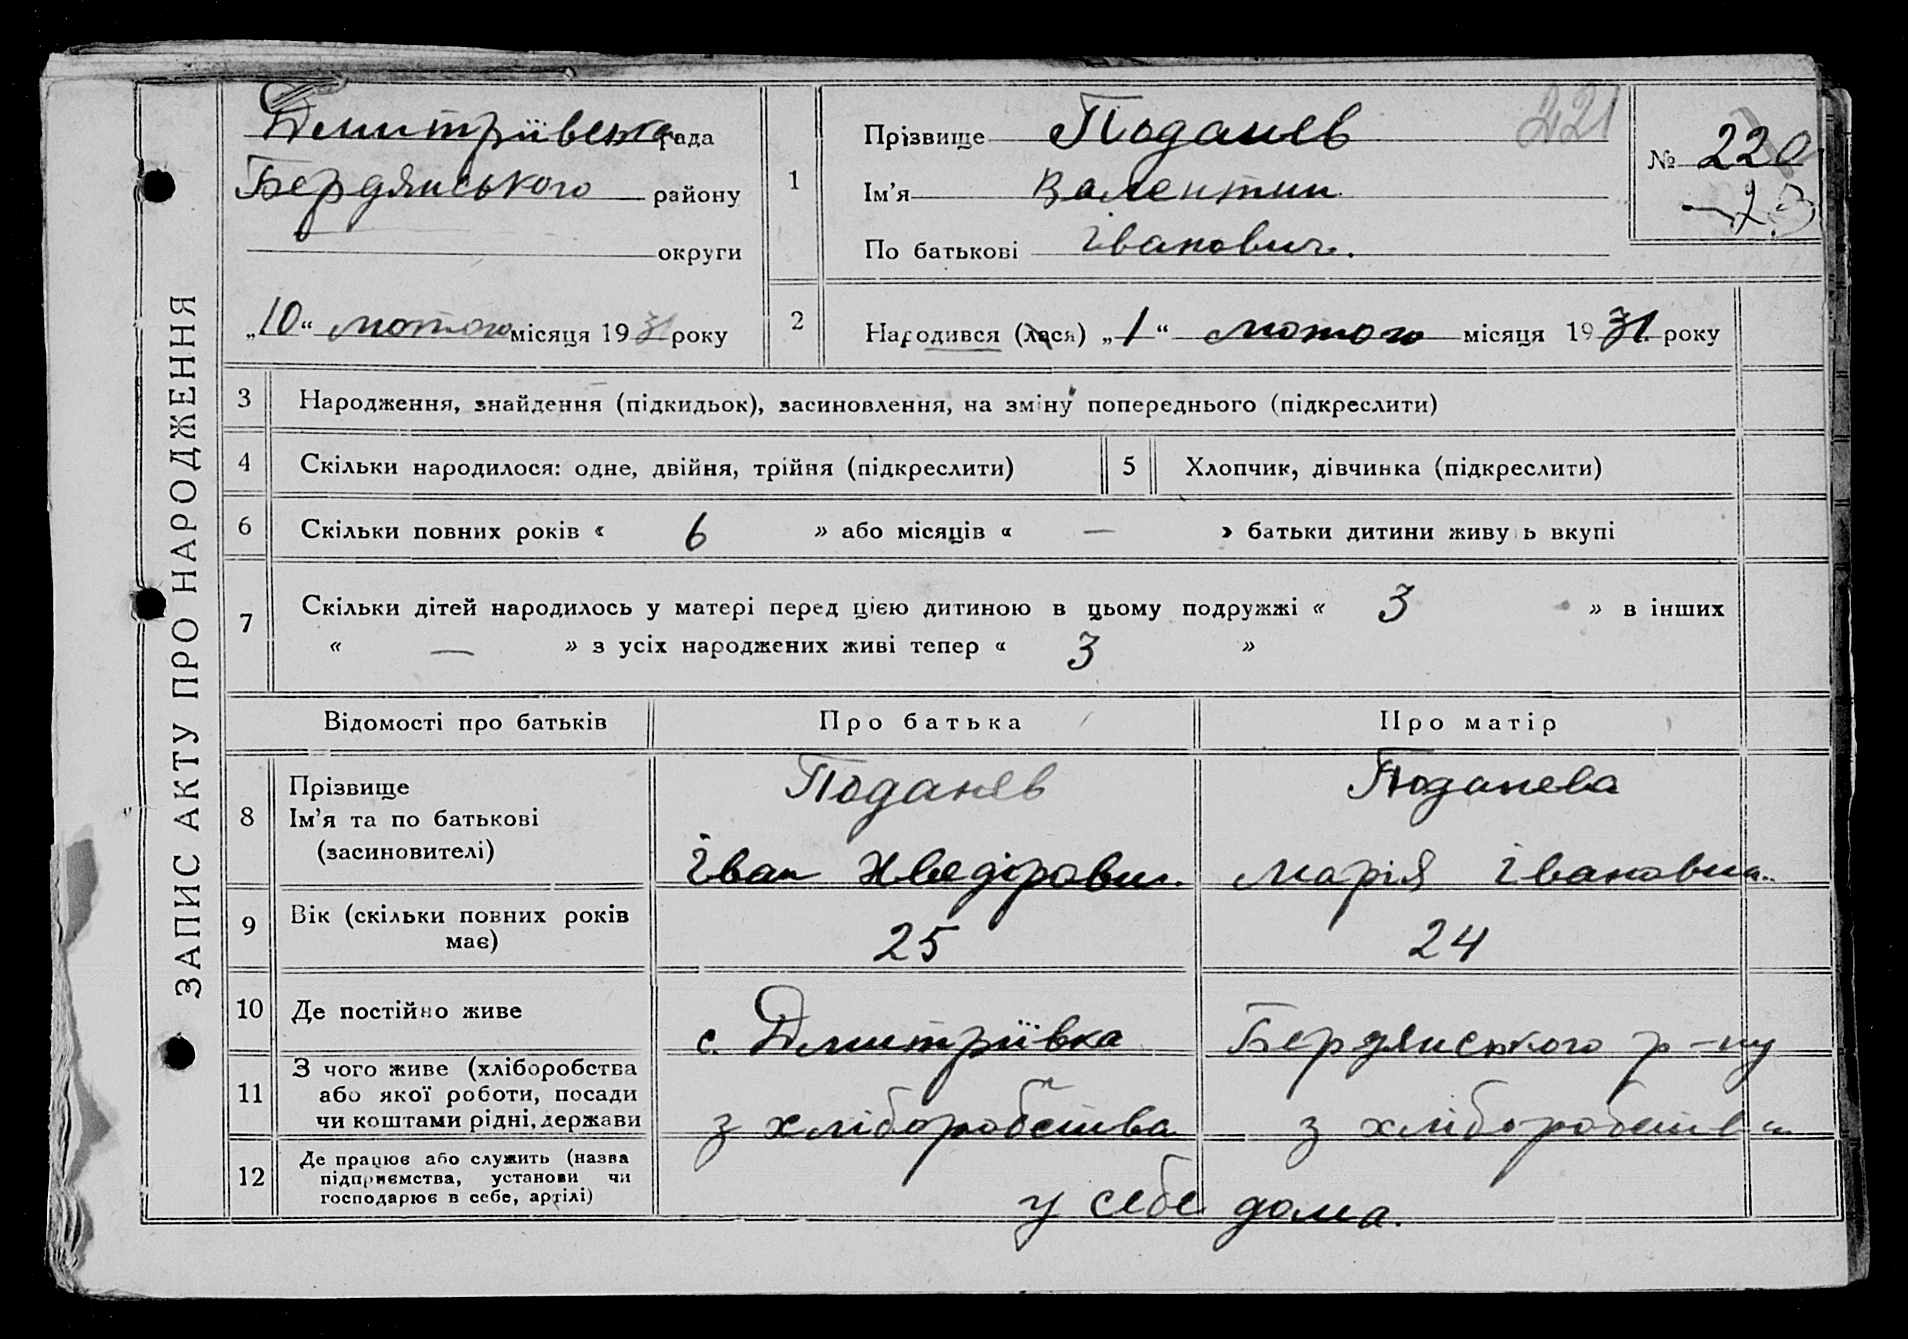 ЗАПИС АКТУ ПРО НАРОДЖЕННЯ
Дмитріївська рада
Бердянського району
округи
„10“ лютого місяця 1931 року
1
Прізвище Поданев
Ім’я Валентин
По батькові Іванович.
221
№ 220
23
2
Народився (лася) „1“ лютого місяця 1931 року
3 Народження, знайдення (підкидьок), засиновлення, на зміну попереднього (підкреслити)
4 Скільки народилося: одне, двійня, трійня (підкреслити) 5 Хлопчик, дівчинка (підкреслити)
6 Скільки повних років « 6 » або місяців « — » батьки дитини живуть вкупі
7 Скільки дітей народилось у матері перед цією дитиною в цьому подружжі « 3 » в інших
« — » з усіх народжених живі тепер « 3 »
Відомості про батьків Про батька Про матір
8 Прізвище
Ім’я та по батькові
(засиновителі)
Поданев
Іван
Поданева
Марія Івановна.
9 Вік (скільки повних років
має)
25 24
10 Де постійно живе с. Дмитріївка Бердянського р-ну
11 З чого живе (хліборобства
або якої роботи, посади
чи коштами рідні, держави
з хліборобства з хліборобства
12 Де працює або служить (назва
підприємства, установи чи
господарює в себе, артілі)
у себе дома.